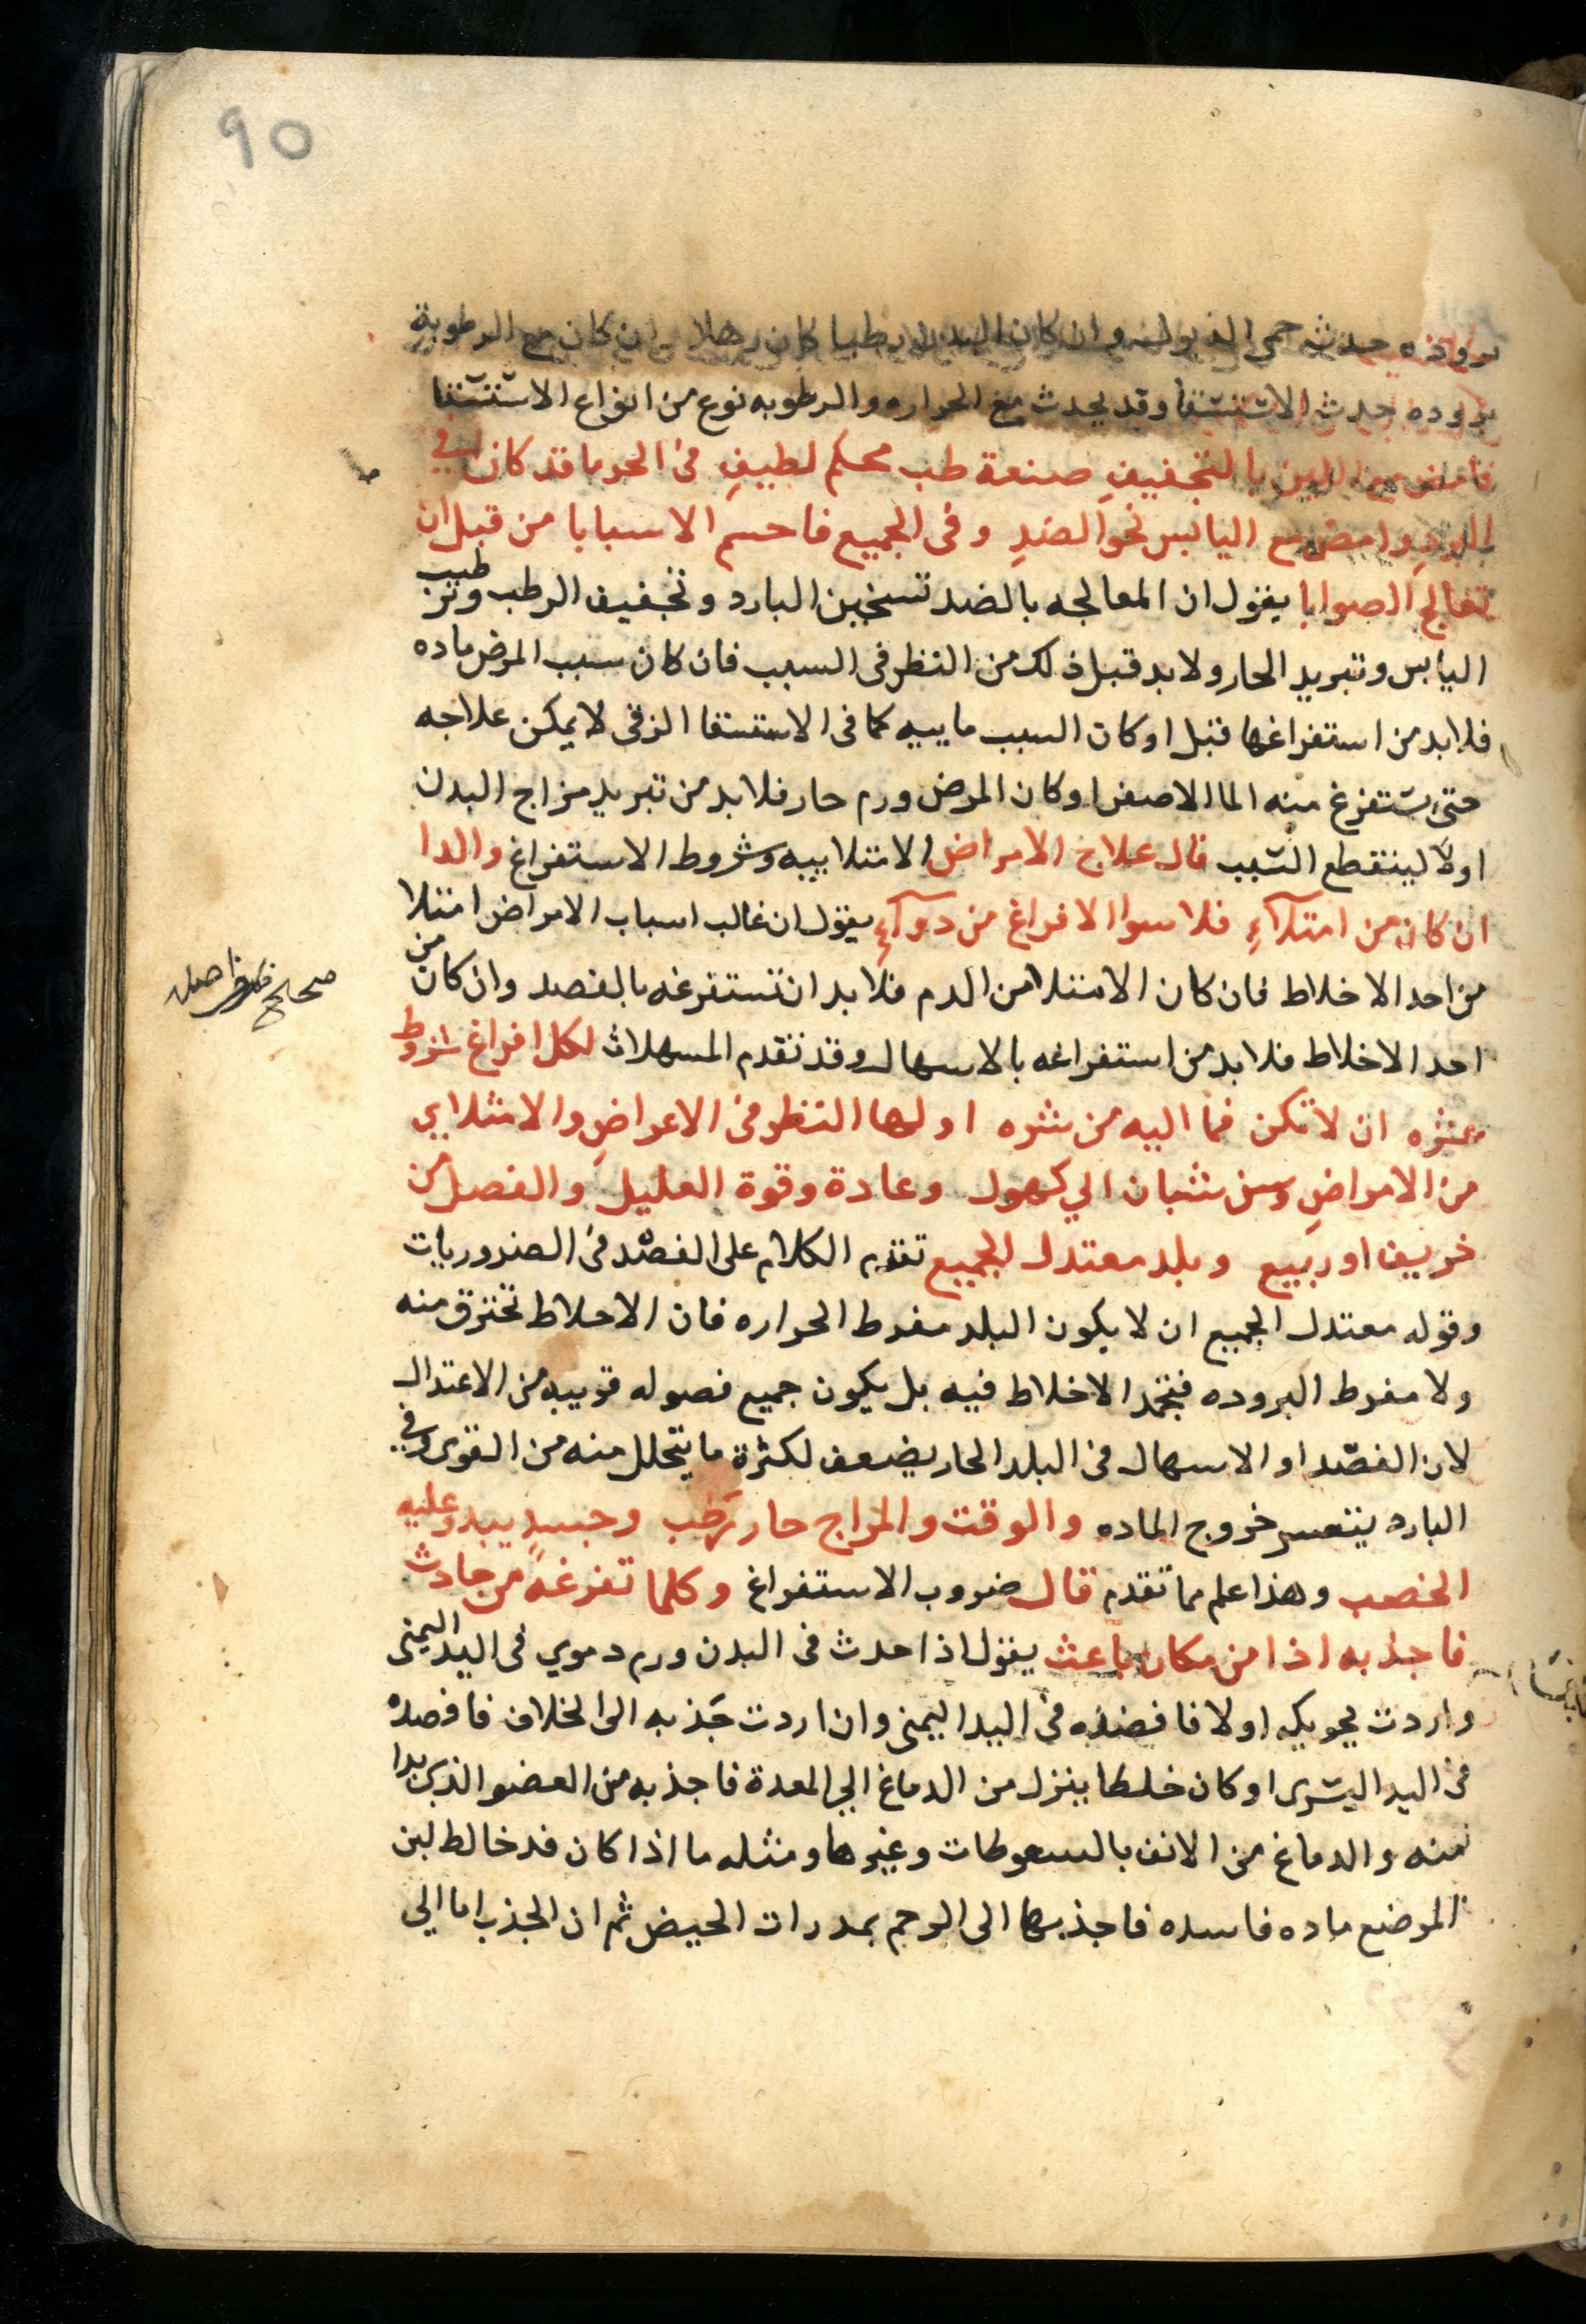 90
بروده حدث حمى الذبول وان كان البدن رطبا كان رهلا وان كان مع الرطوبة
بروده حدث الاستسقا وقد يحدث مع الحراره والرطوبه نوع من انواع الاستسقا
بالتجفيف صنعة طب محكم لطيف فى الحر ما قد كان
البرد وامض مع اليابس نحو الضد وفى الجميع فاحسم الاسبابا من قبل ان
تعالج الصوابا يقول ان المعالجه بالضد تسخين البارد وتجفيف الرطب وترطيب
اليابس وتبريد الحار ولا بد قبل ذلك من النظر فى السبب فان كان سبب المرض ماده
فلا بد من استفراغها قبل او كان السبب ماييه كما فى الاستسقا الزقى لا يمكن علاجه
حتى تستفرغ منه الما الاصفر او كان المرض ورم حار فلا بد من تبريد مزاج البدن
اولا لينقطع السبب قال علاج الامراض الامتلاييه وشروط الاستفراغ والدا
ان كان من امتلآء فلا سوا الافراغ من دوآء يقول ان غالب اسباب الامراض امتلا
من احد الاخلاط فان كان الامتلا من الدم فلا بد ان تستفرغه بالفصد وان كان من
احد الاخلاط فلا بد من استفراغه بالاسهال وقد تقدم المسهلات لكل افراغ شروط
عشره ان لا تكن فما اليه من شره اولها النظر فى الاعراض والامتلاى
من الامراض وسن شبان الي كهول وعادة وقوة العليل والفصل من
خريف او ربيع وبلد معتدل الجميع تقدم الكلام على الفصد فى الضروريات
وقوله معتدل الجميع ان لا يكون البلد مفرط الحراره فان الاخلاط تحترق منه
ولا مفرط البروده فتجمد الاخلاط فيه بل يكون جميع فصوله قريبه من الاعتدال
لان الفصد او الاسهال فى البلد الحار يضعف لكثرة ما يتحلل منه من القوى وفى
البارد يتعسر خروج الماده والوقت والمزاج حار رطب وجسد يبدو عليه
الخصب وهذا علم مما تقدم قال ضروب الاستفراغ وكلما تفرغه من حادث
فاجذبه اذا من مكان باعث يقول اذا حدث فى البدن ورم دموي فى اليد اليمنى
واردت تحويله اولا فافصده فى اليد اليمنى وان اردت جذبه الى الخلاف فافصده
فى اليد اليسرى او كان خلطا ينزل من الدماغ الي المعدة فاجذبه من العضو الذى بدا
منه والدماغ من الانف بالسعوطات وغيرها ومثله ما اذا كان قد خالط لبن
المرضع ماده فاسده فاجذبها الى الرحم بمدرات الحيض ثم ان الجذب اما الي